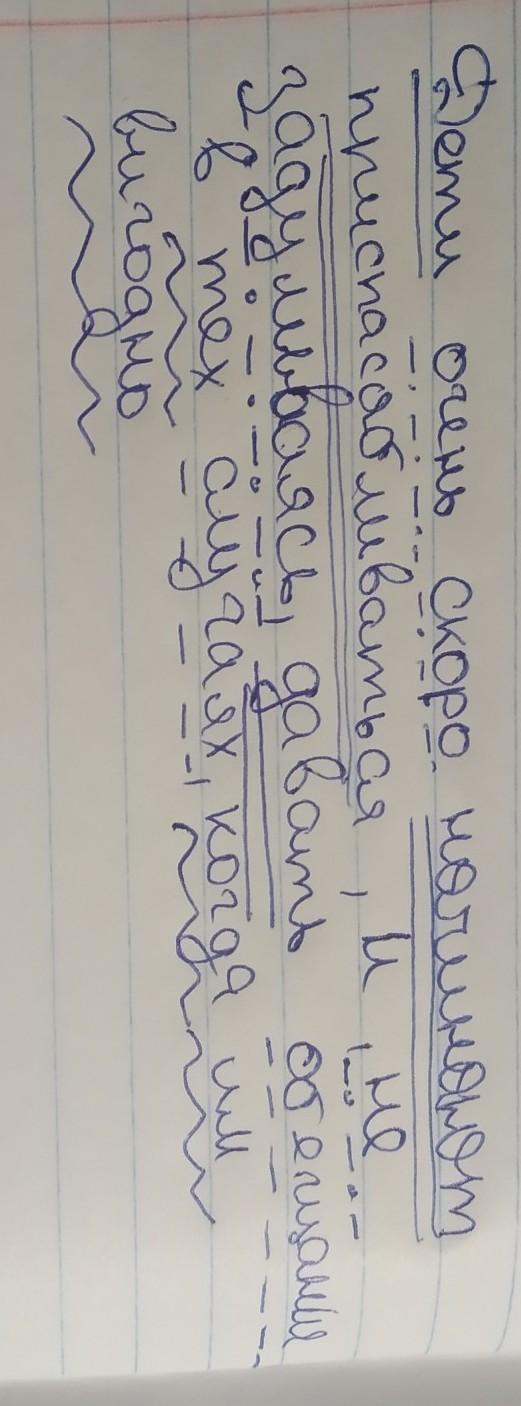 Дети очень скоро начинают
приспасабливаться, и не
задумываясь, давать обещании
в тех случаях, когда им
вигодно